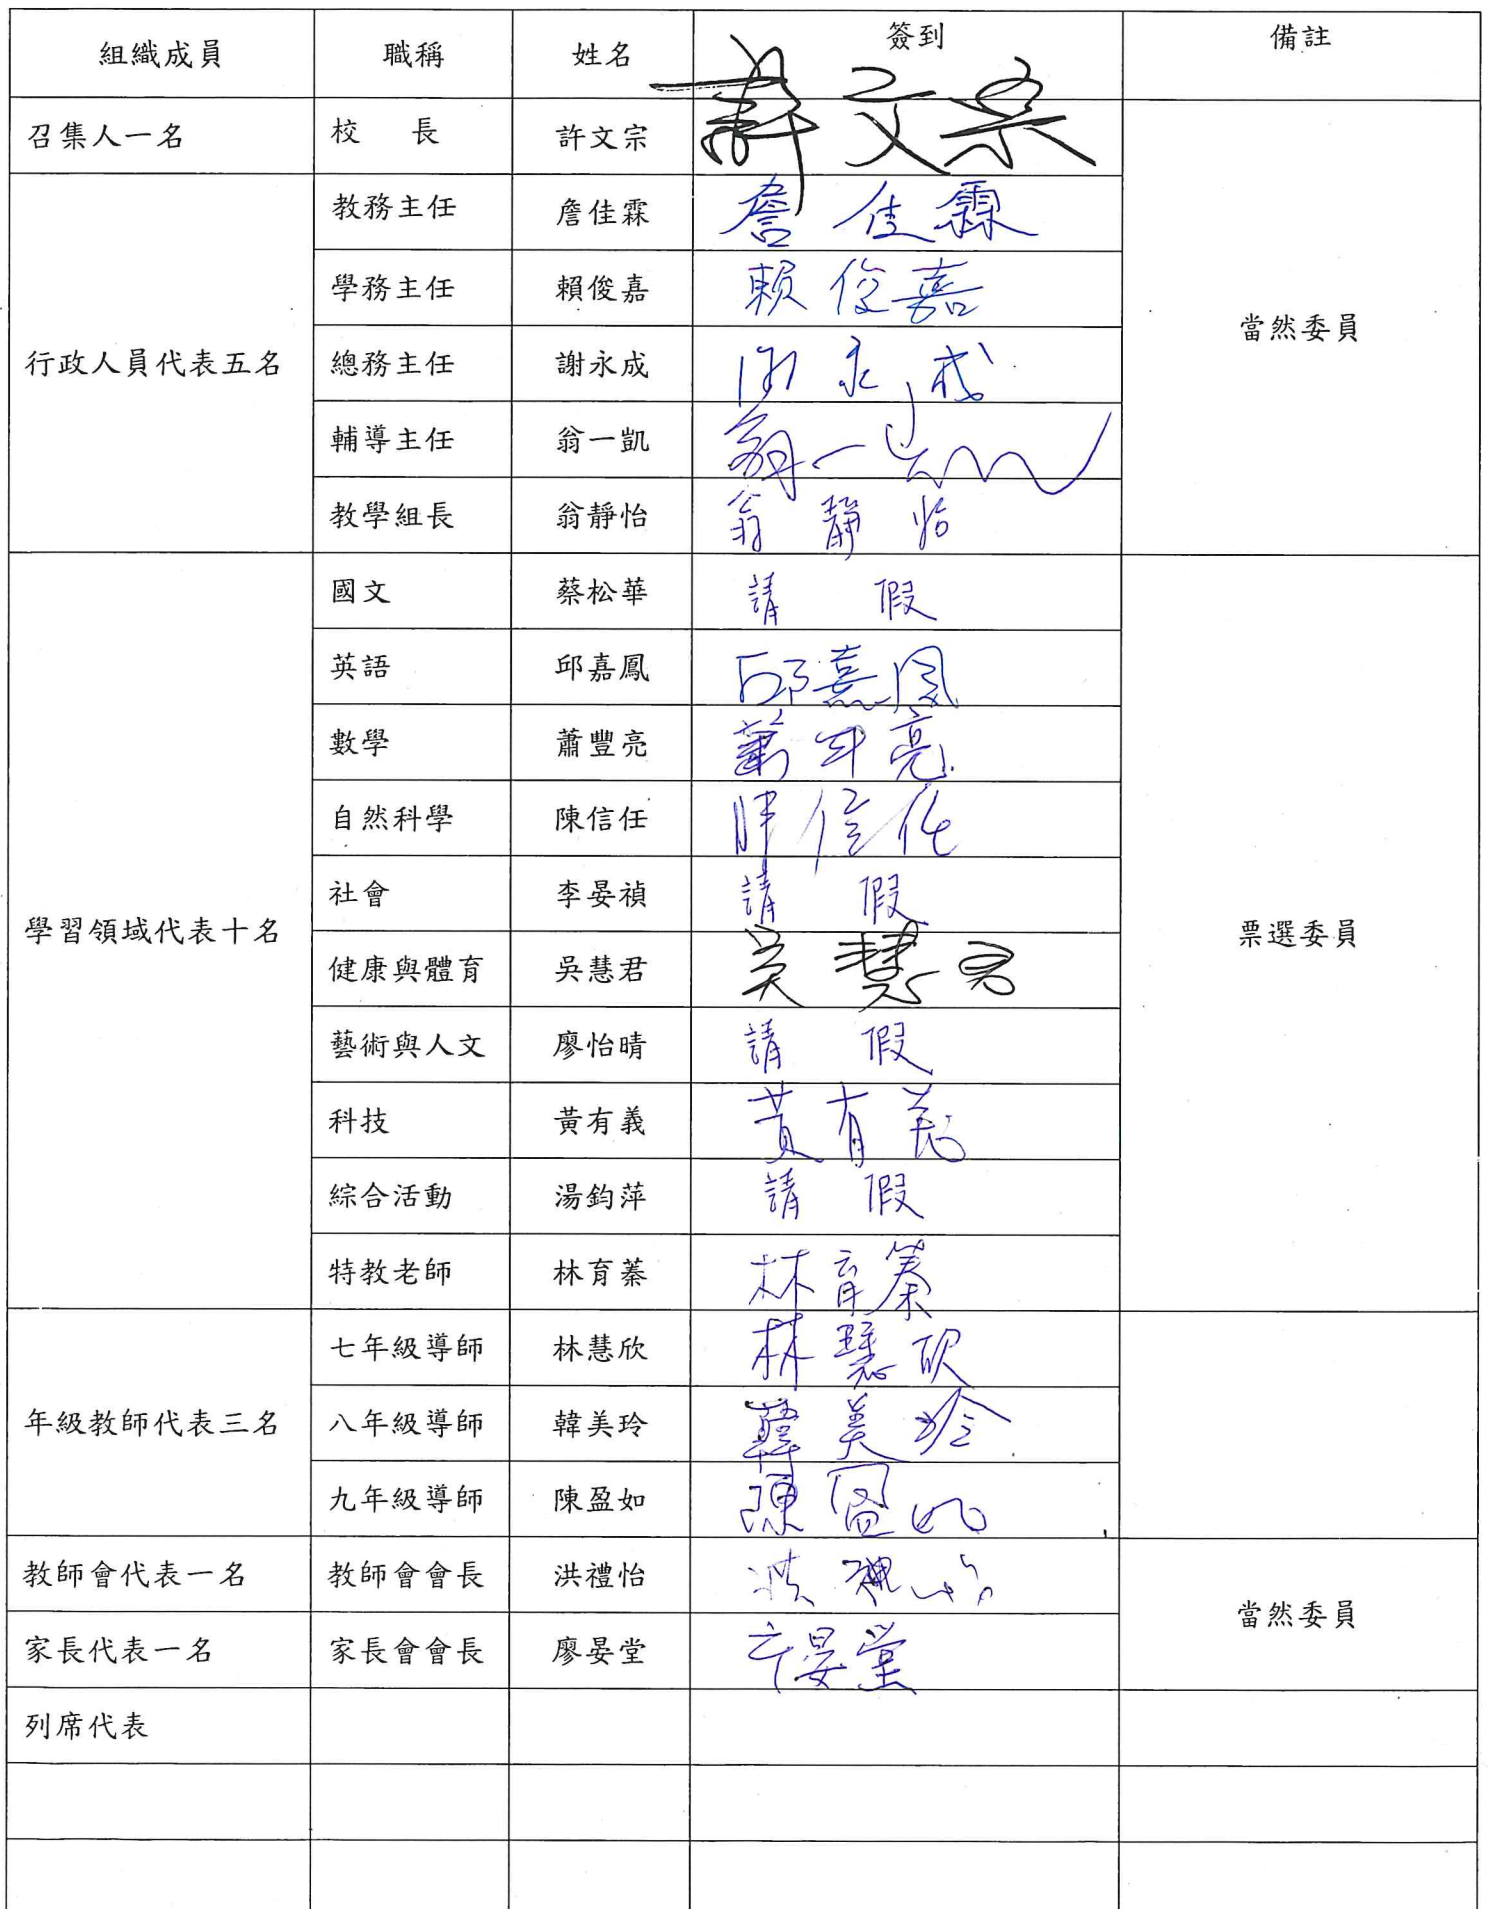 組織成員 職稱 姓名 簽到 備註
召集人一名 校 長 許文宗 許文宗
行政人員代表五名 教務主任 詹佳霖 詹佳霖 當然委員
學務主任 賴俊嘉 賴俊嘉
總務主任 謝永成 謝永成
輔導主任 翁一凱 翁一凱
教學組長 翁靜怡 翁靜怡
學習領域代表十名 國文 蔡松華 請 假 票選委員
英語 邱嘉鳳 邱嘉鳳
數學 蕭豐亮 蕭丰亮
自然科學 陳信任 陳信任
社會 李晏禎 請 假
健康與體育 吳慧君 吳慧君
藝術與人文 廖怡晴 請 假
科技 黃有義 黃有義
綜合活動 湯鈞萍 請 假
特教老師 林育蓁 林育蓁
年級教師代表三名 七年級導師 林慧欣 林慧欣
八年級導師 韓美玲 韓美玲
九年級導師 陳盈如 陳盈如
教師會代表一名 教師會會長 洪禮怡 洪禮怡 當然委員
家長代表一名 家長會會長 廖晏堂 晏堂
列席代表